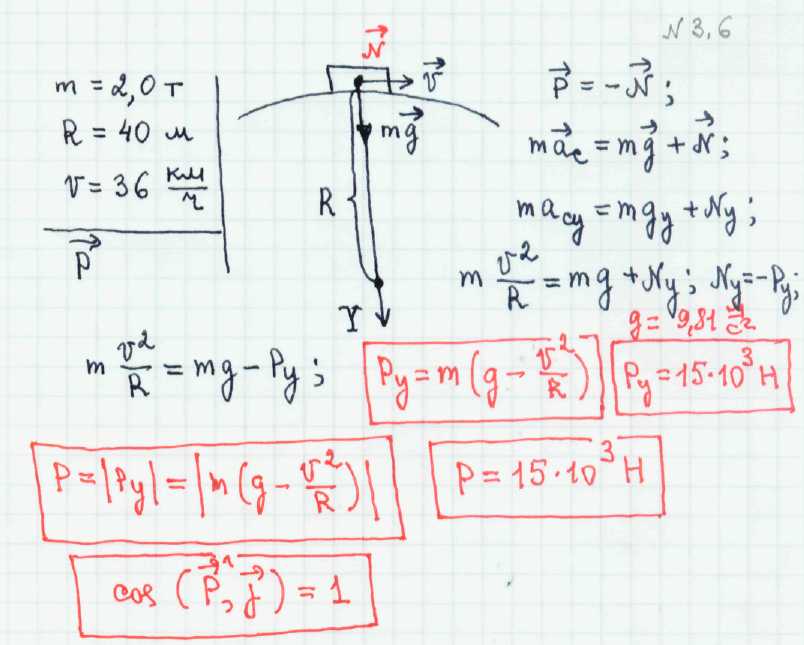 N 3,6
m = 2,0 т
R = 40 м
v = 36 км/ч
P⃗
N⃗
v⃗
mg⃗
R
Y
P⃗ = -N⃗;
ma⃗c = mg⃗ + N⃗;
macy = mgy + Ny;
m v²/R = mg + Ny; Ny = -Py;
g = 9,81 м/с²
m v²/R = mg - Py;
Py = m(g - v²/R)
Py = 15·10³ Н
P = |Py| = |m(g - v²/R)|
P = 15·10³ Н
cos (P⃗,^ j⃗) = 1